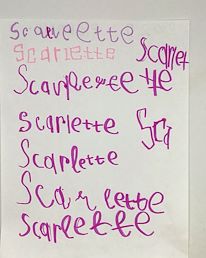 Scaueette
Scarlette
Scarlet
Scaurlerette
Scarlette
Sca
Scarlette
Scarlette
Scarlette